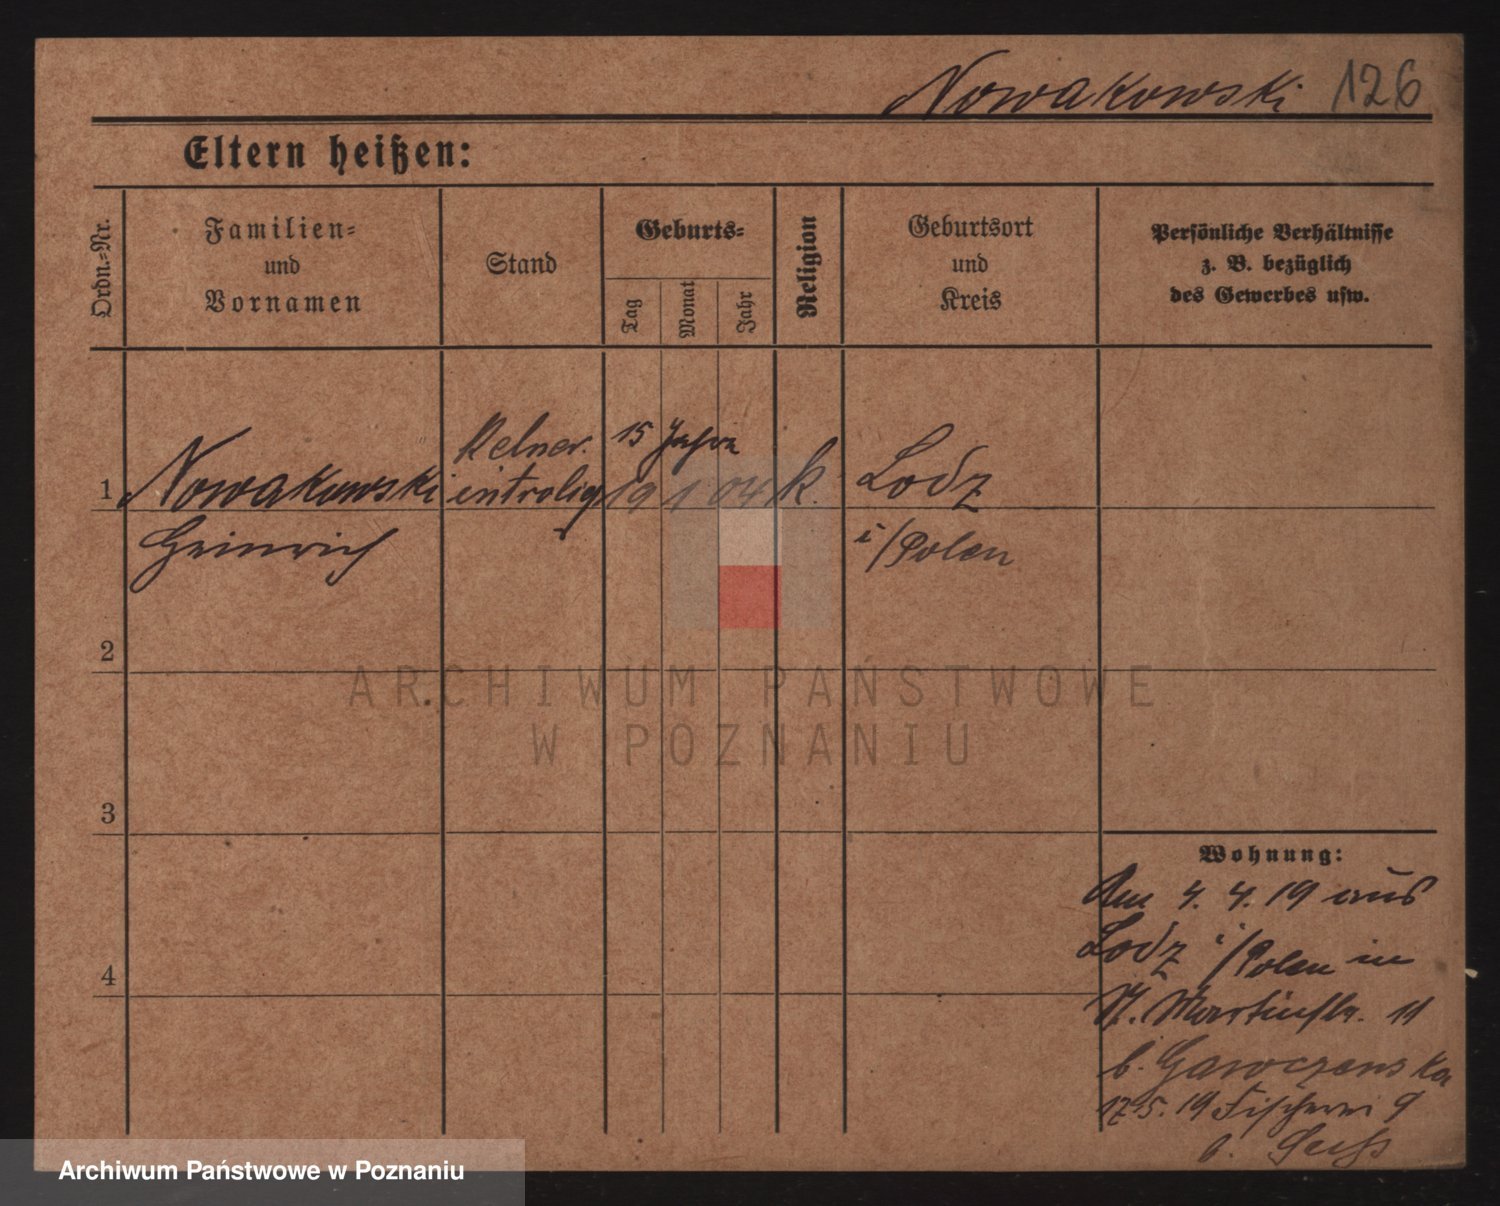 Nowakowski 126
Eltern heißen:
Ordn.-Nr.
Familien-
und
Vornamen
Stand
Geburts-
Tag
Monat
Jahr
Religion
Geburtsort
und
Kreis
Persönliche Verhältnisse
z. B. bezüglich
des Gewerbes usw.
Kelner. 15 Jahre
1 Nowakowski introlig 19 1 04 k. Lodz
Heinrich i/Polen
2
3
4
Wohnung:
Am 4. 4. 19 aus
Lodz i/Polen in
St. Martinstr. 11
b. Gawoczenska
17.5.19 Fischerei 9
b.
ARCHIWUM PAŃSTWOWE
W POZNANIU
Archiwum Państwowe w Poznaniu